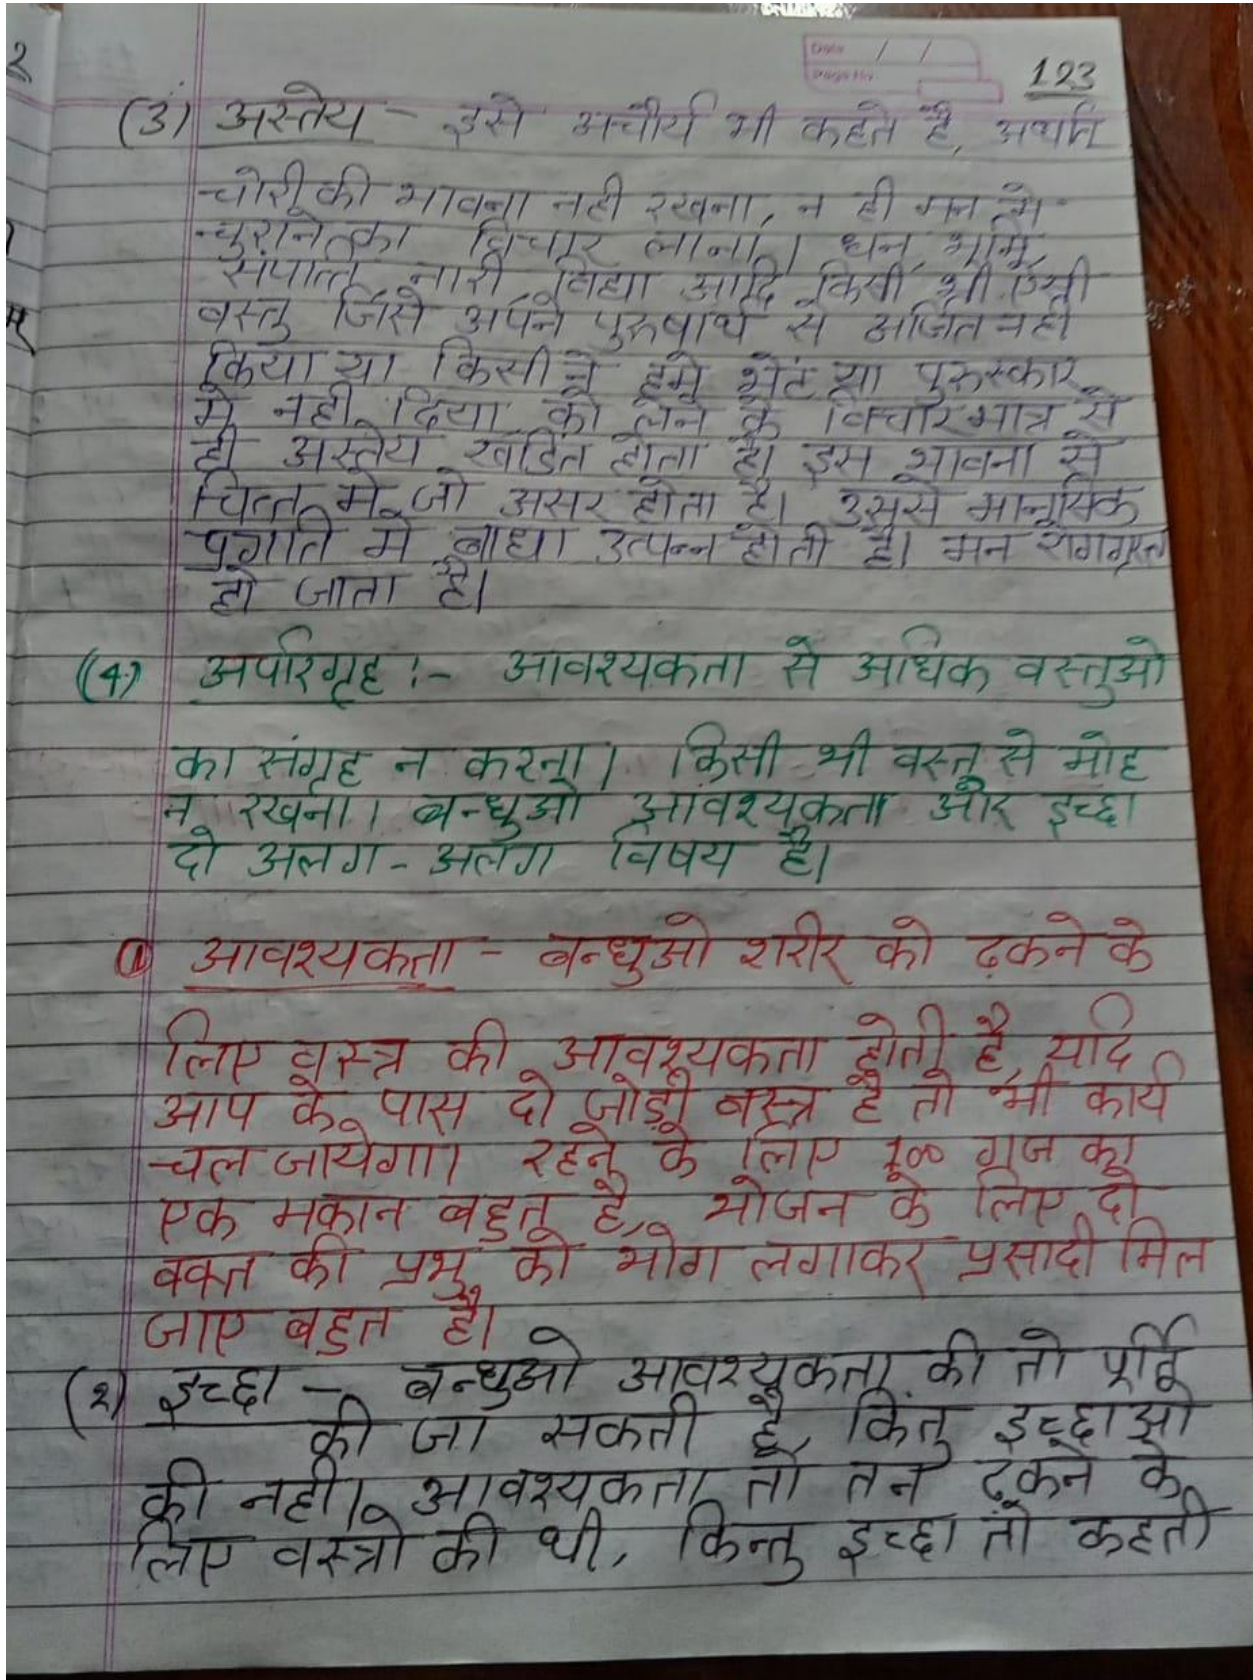 Date / /
Page No
123
(3) अस्तेय - इसे अचौर्य भी कहते है, अर्थात
चोरी की भावना नही रखना, न ही मन मे
चुराने का विचार लाना। धन, भूमि,
संपत्ति नारी विद्या आदि किसी भी ऐसी
वस्तु जिसे अपने पुरुषार्थ से अर्जित नही
किया या किसी ने हमे भेंट या पुरुस्कार
मे नही दिया को लेने के विचार मात्र से
ही अस्तेय खंडित होता है। इस भावना से
चित्त मे जो असर होता है। उससे मानसिक
प्रगति मे बाधा उत्पन्न होती है। मन रोगग्रस्त
हो जाता है।
(4) अपरिग्रह :- आवश्यकता से अधिक वस्तुओ
का संग्रह न करना। किसी भी वस्तु से मोह
न रखना। बन्धुओ आवश्यकता और इच्छा
दो अलग - अलग विषय है।
① आवश्यकता - बन्धुओ शरीर को ढ़कने के
लिए वस्त्र की आवश्यकता होती है, यदि
आप के पास दो जोड़ी वस्त्र है तो भी कार्य
चल जायेगा। रहने के लिए 100 गज का
एक मकान बहुत है, भोजन के लिए दो
वक्त की प्रभु को भोग लगाकर प्रसादी मिल
जाए बहुत है।
(२) इच्छा - बन्धुओ आवश्यकता की तो पूर्ति
की जा सकती है, किंतु इच्छाओ
की नही। आवश्यकता तो तन ढ़कने के
लिए वस्त्रो की थी, किन्तु इच्छा तो कहती